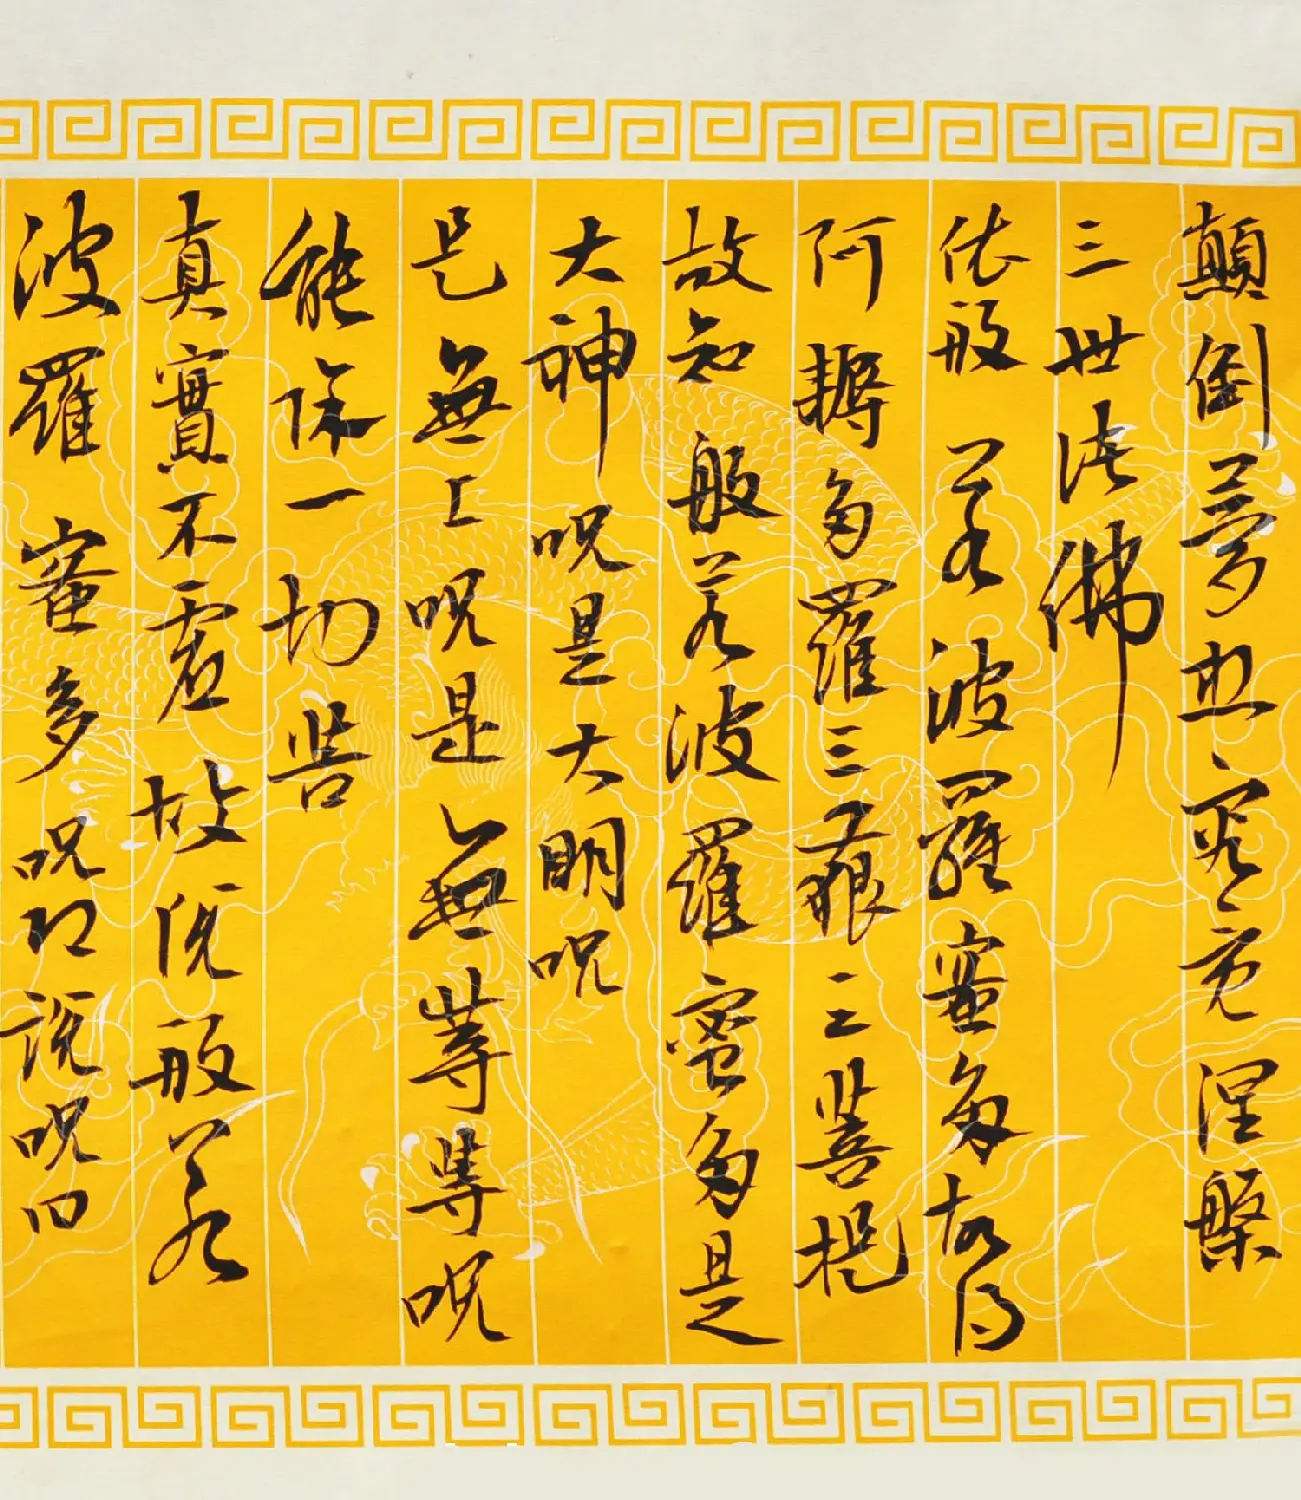 顛倒夢想究竟涅槃
三世諸佛
依般若波羅蜜多故得
阿耨多羅三藐三菩提
故知般若波羅蜜多是
大神呪是大明呪
是無上呪是無等等呪
能除一切苦
真實不虛故説般若
波羅蜜多呪即説呪曰